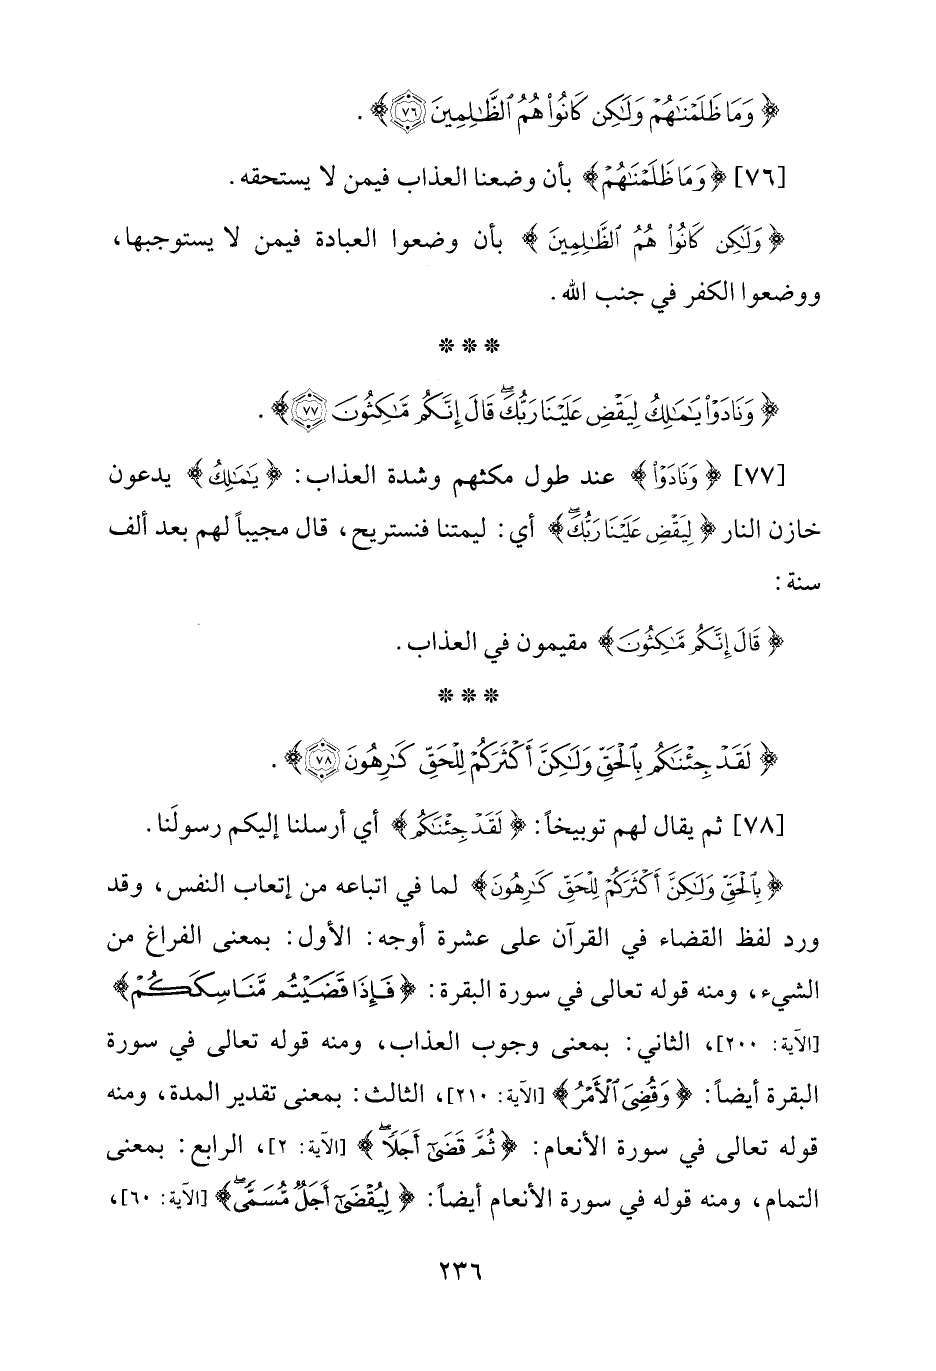 ﴿ وَمَا ظَلَمْنَٰهُمْ وَلَٰكِن كَانُوا۟ هُمُ ٱلظَّٰلِمِينَ ٧٦ ﴾ .
[٧٦] ﴿ وَمَا ظَلَمْنَٰهُمْ ﴾ بأن وضعنا العذاب فيمن لا يستحقه .
﴿ وَلَٰكِن كَانُوا۟ هُمُ ٱلظَّٰلِمِينَ ﴾ بأن وضعوا العبادة فيمن لا يستوجبها ،
ووضعوا الكفر في جنب الله .
* * *
﴿ وَنَادَوْا۟ يَٰمَٰلِكُ لِيَقْضِ عَلَيْنَا رَبُّكَ ۖ قَالَ إِنَّكُم مَّٰكِثُونَ ٧٧ ﴾ .
[٧٧] ﴿ وَنَادَوْا۟ ﴾ عند طول مكثهم وشدة العذاب : ﴿ يَٰمَٰلِكُ ﴾ يدعون
خازن النار ﴿ لِيَقْضِ عَلَيْنَا رَبُّكَ ۖ ﴾ أي : ليمتنا فنستريح ، قال مجيباً لهم بعد ألف
سنة :
﴿ قَالَ إِنَّكُم مَّٰكِثُونَ ﴾ مقيمون في العذاب .
* * *
﴿ لَقَدْ جِئْنَٰكُم بِٱلْحَقِّ وَلَٰكِنَّ أَكْثَرَكُمْ لِلْحَقِّ كَٰرِهُونَ ٧٨ ﴾ .
[٧٨] ثم يقال لهم توبيخاً : ﴿ لَقَدْ جِئْنَٰكُم ﴾ أي أرسلنا إليكم رسولَنا .
﴿ بِٱلْحَقِّ وَلَٰكِنَّ أَكْثَرَكُمْ لِلْحَقِّ كَٰرِهُونَ ﴾ لما في اتباعه من إتعاب النفس ، وقد
ورد لفظ القضاء في القرآن على عشرة أوجه : الأول : بمعنى الفراغ من
الشيء ، ومنه قوله تعالى في سورة البقرة : ﴿ فَإِذَا قَضَيْتُم مَّنَاسِكَكُمْ ﴾
[الآية : ٢٠٠] ، الثاني : بمعنى وجوب العذاب ، ومنه قوله تعالى في سورة
البقرة أيضاً : ﴿ وَقُضِىَ ٱلْأَمْرُ ﴾ [الآية : ٢١٠] ، الثالث : بمعنى تقدير المدة ، ومنه
قوله تعالى في سورة الأنعام : ﴿ ثُمَّ قَضَىٰٓ أَجَلًا ۖ ﴾ [الآية : ٢] ، الرابع : بمعنى
التمام ، ومنه قوله في سورة الأنعام أيضاً : ﴿ لِيُقْضَىٰٓ أَجَلٌ مُّسَمًّى ۖ ﴾ [الآية : ٦٠] ،
٢٣٦